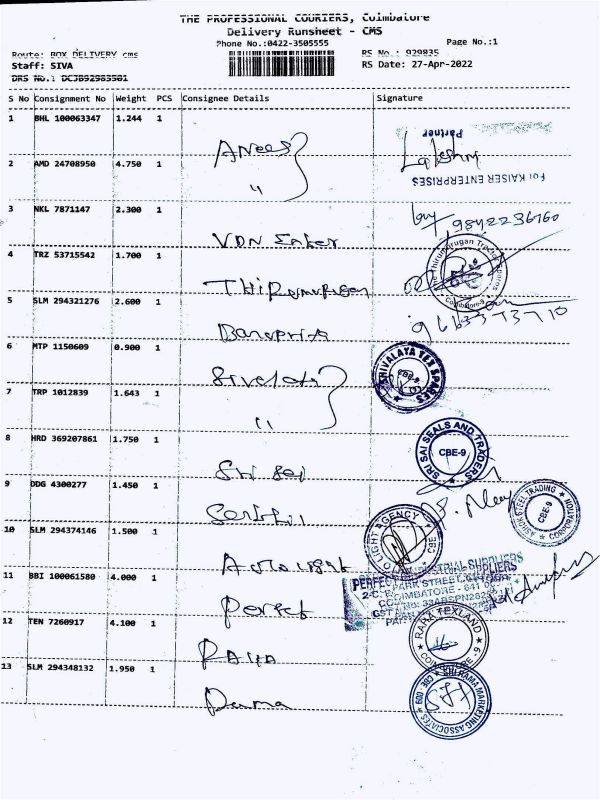 THE PROFESSIONAL COURIERS, Coimbatore
Delivery Runsheet - CMS
Phone No.:0422-3505555
Page No.:1
Route: BOX DELIVERY cms
RS No.: 929835
Staff: SIVA
RS Date: 27-Apr-2022
DRS No.: DCJB92983501
S No Consignment No Weight PCS Consignee Details Signature
1 BHL 100063347 1.244 1
Partner
Lakshmi
For KAISER ENTERPRISES
Anees
2 AMD 24708950 4.750 1
"
3 NKL 7871147 2.300 1
9842236760
VDN
4 TRZ 53715542 1.700 1
Thirumurugan
Coimbatore-9
5 SLM 294321276 2.600 1
9663373710
Banupriya
6 MTP 1150609 0.900 1
SHIVALAYA TEX SPARES
CBE-9
7 TRP 1012839 1.643 1
"
8 HRD 369207861 1.750 1
SRI SAI SEALS AND TRADERS
CBE-9
Sri Sai
9 DDG 4300277 1.450 1
ASHOK STEEL TRADING CORPORATION
CBE-9
10 SLM 294374146 1.500 1
LIGHT AGENCY
CBE
Auto light
11 BBI 100061580 4.000 1
PERFECT INDUSTRIAL SUPPLIERS
PARK STREET,
COIMBATORE - 641 0
Perfect
12 TEN 7260917 4.100 1
RARA TEXLAND
COIMBATORE - 9
RARA
13 SLM 294348132 1.950 1
SRI RAMA MARKETING ASSOCIATES
CBE - 009
Rama